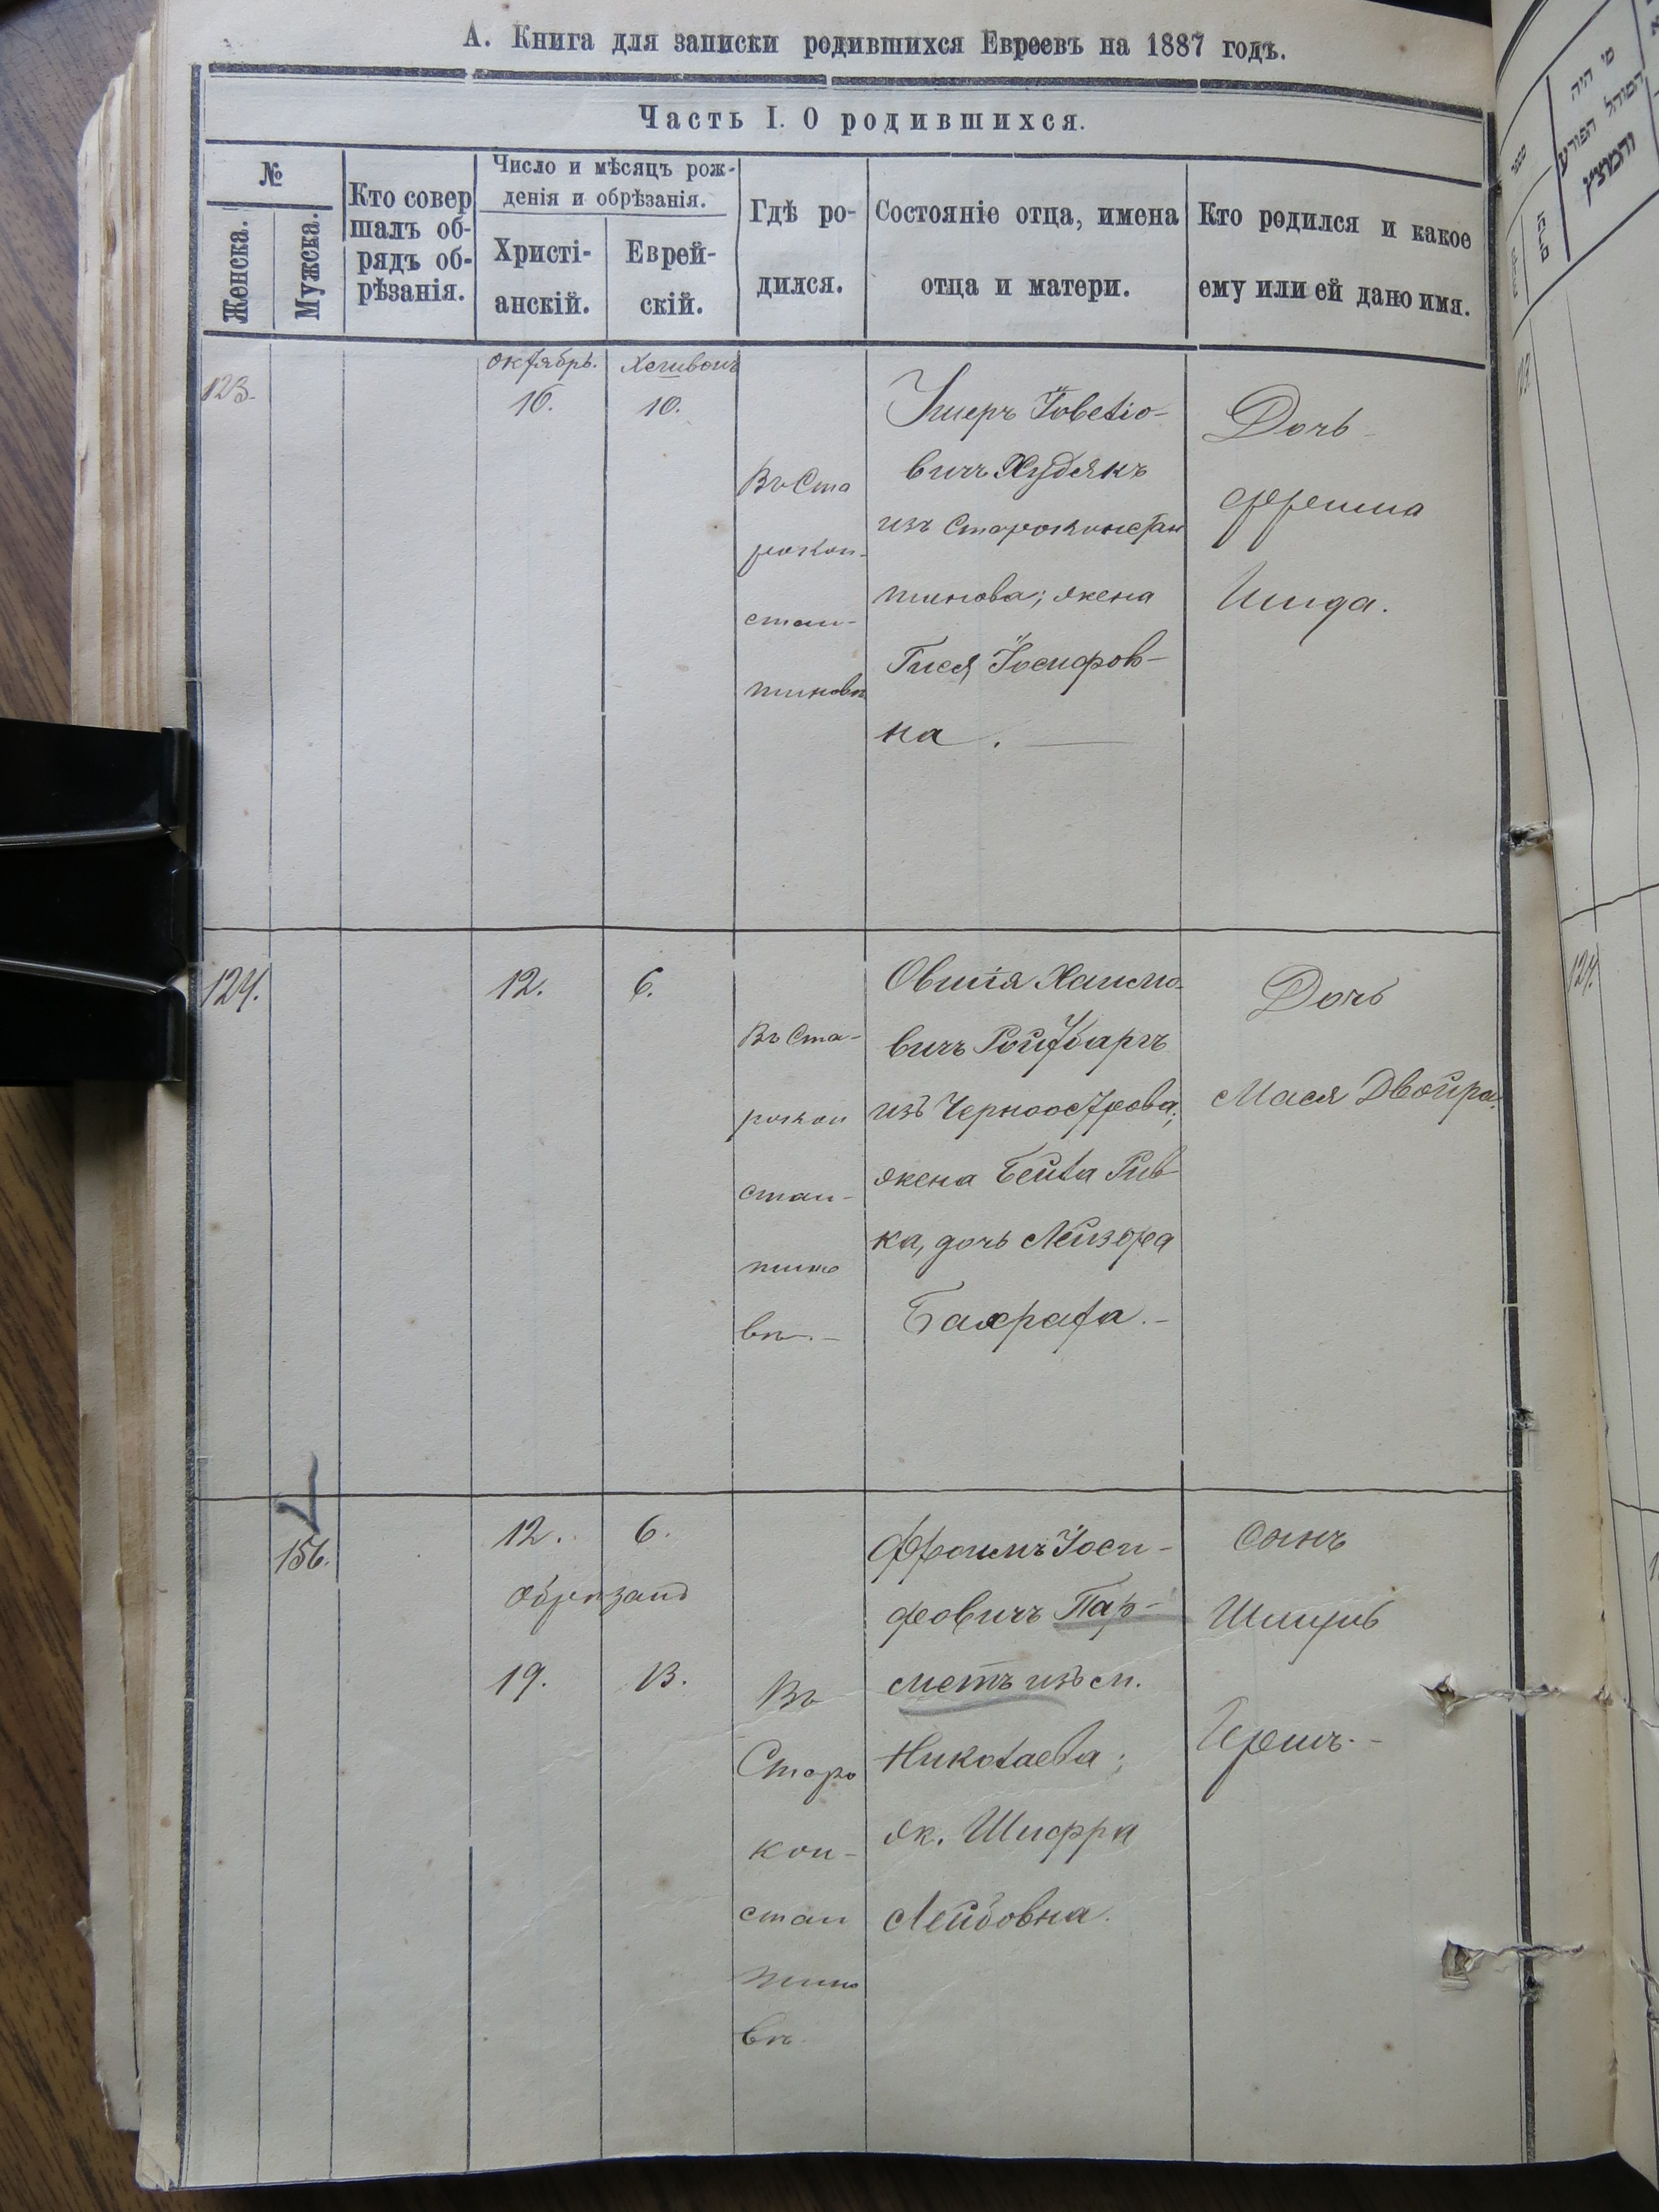 А. Книга для записки родившихся Евреевъ на 1887 годъ.
Часть I. О родившихся.
№
Женска.
Мужска.
Кто совер
шалъ об-
рядъ об-
рѣзанія.
Число и мѣсяцъ рож-
денія и обрѣзанія.
Христі-
анскій.
Еврей-
скій.
Гдѣ ро-
дился.
Состояніе отца, имена
отца и матери.
Кто родился и какое
ему или ей дано имя.
123.
октябрь.
16.
10.
Въ Ста
рокон-
стан-
тиновѣ
вичъ Худякъ
изъ Староконстан
тинова; жена
Гися Іосифов-
на.
Дочь
Фрейма
Шида.
124.
12.
6.
Въ Ста-
рокон
стан-
тино
вѣ.-
Овшія Хаимо-
вичъ Ройтбаргъ
изъ Черноострова;
жена Бейла Рив-
ка, дочь Лейзора
Бахрата.-
Дочь
Мася Двойра.
156.
12.
6.
обрѣзанъ
19.
13.
Въ
Старо
кон-
стан
тино
вѣ
Фроимъ Іоси-
фовичъ Пар-
метъ изъ м.
Николаева;
ж. Шифра
Лейбовна.
сынъ
Шмуль
Гершъ.-
124.
מי היה
המוהל הפורע
והמוצץ